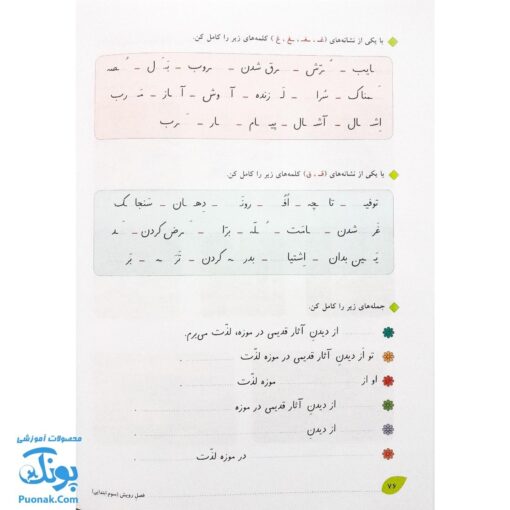 با یکی از نشانه‌های (غـ ، ـغـ ، ـغ ، غ) کلمه‌های زیر را کامل کن.
ـایب – ُـرّش – ـرق شدن – ـروب – بَـَل – ُـصه
َـمناک – سُرا – لَـزنده – آ وش – آ از – مَـرب
اِشـال – آشـال – پیـام – ـار – َـرب
با یکی از نشانه‌های (قـ ، ق) کلمه‌های زیر را کامل کن.
توفیـ – تا چه – اُفُـ – رونَـ – دِهـان – سَنجاـک
غَر شدن – ـامَت – ُـلّه – برّا – َـرض کردن – َـد
یَـین بدان – اِشتیا – بدرـه کردن – تَرَـه – بَر
جمله‌های زیر را کامل کن.
از دیدنِ آثار قدیمی در موزه، لذّت می‌برم.
تو از دیدنِ آثار قدیمی در موزه لذّت
او از موزه لذّت
از دیدنِ آثار قدیمی در موزه
از دیدنِ
در موزه لذّت
۷۶
فصل رویش (سوم ابتدایی)
محصولات آموزشی
پونک
Puonak.Com